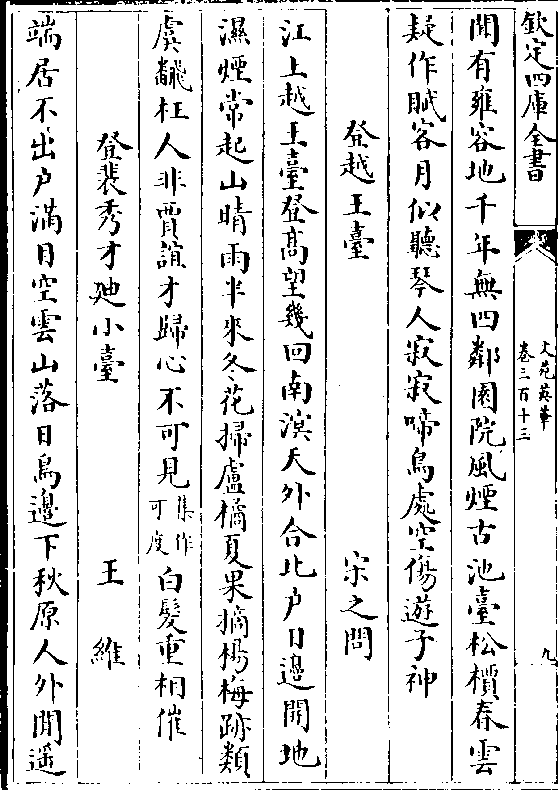 欽定四庫全書
文苑英華
卷三百十三
九
聞有雍容地千年無四鄰園院風煙古池臺松檟春雲
疑作賦客月似聽琴人寂寂啼鳥處空傷遊子神
登越王臺 宋之問
江上越王臺登高望幾回南溟天外合北户日邊開地
濕煙常起山晴雨半來冬花掃盧橘夏果摘楊梅跡類
虞翻枉人非賈誼才歸心不可見集作可度白髮重相催
登裴秀才廸小臺 王維
端居不出户滿目空雲山落日鳥邊下秋原人外閒遥